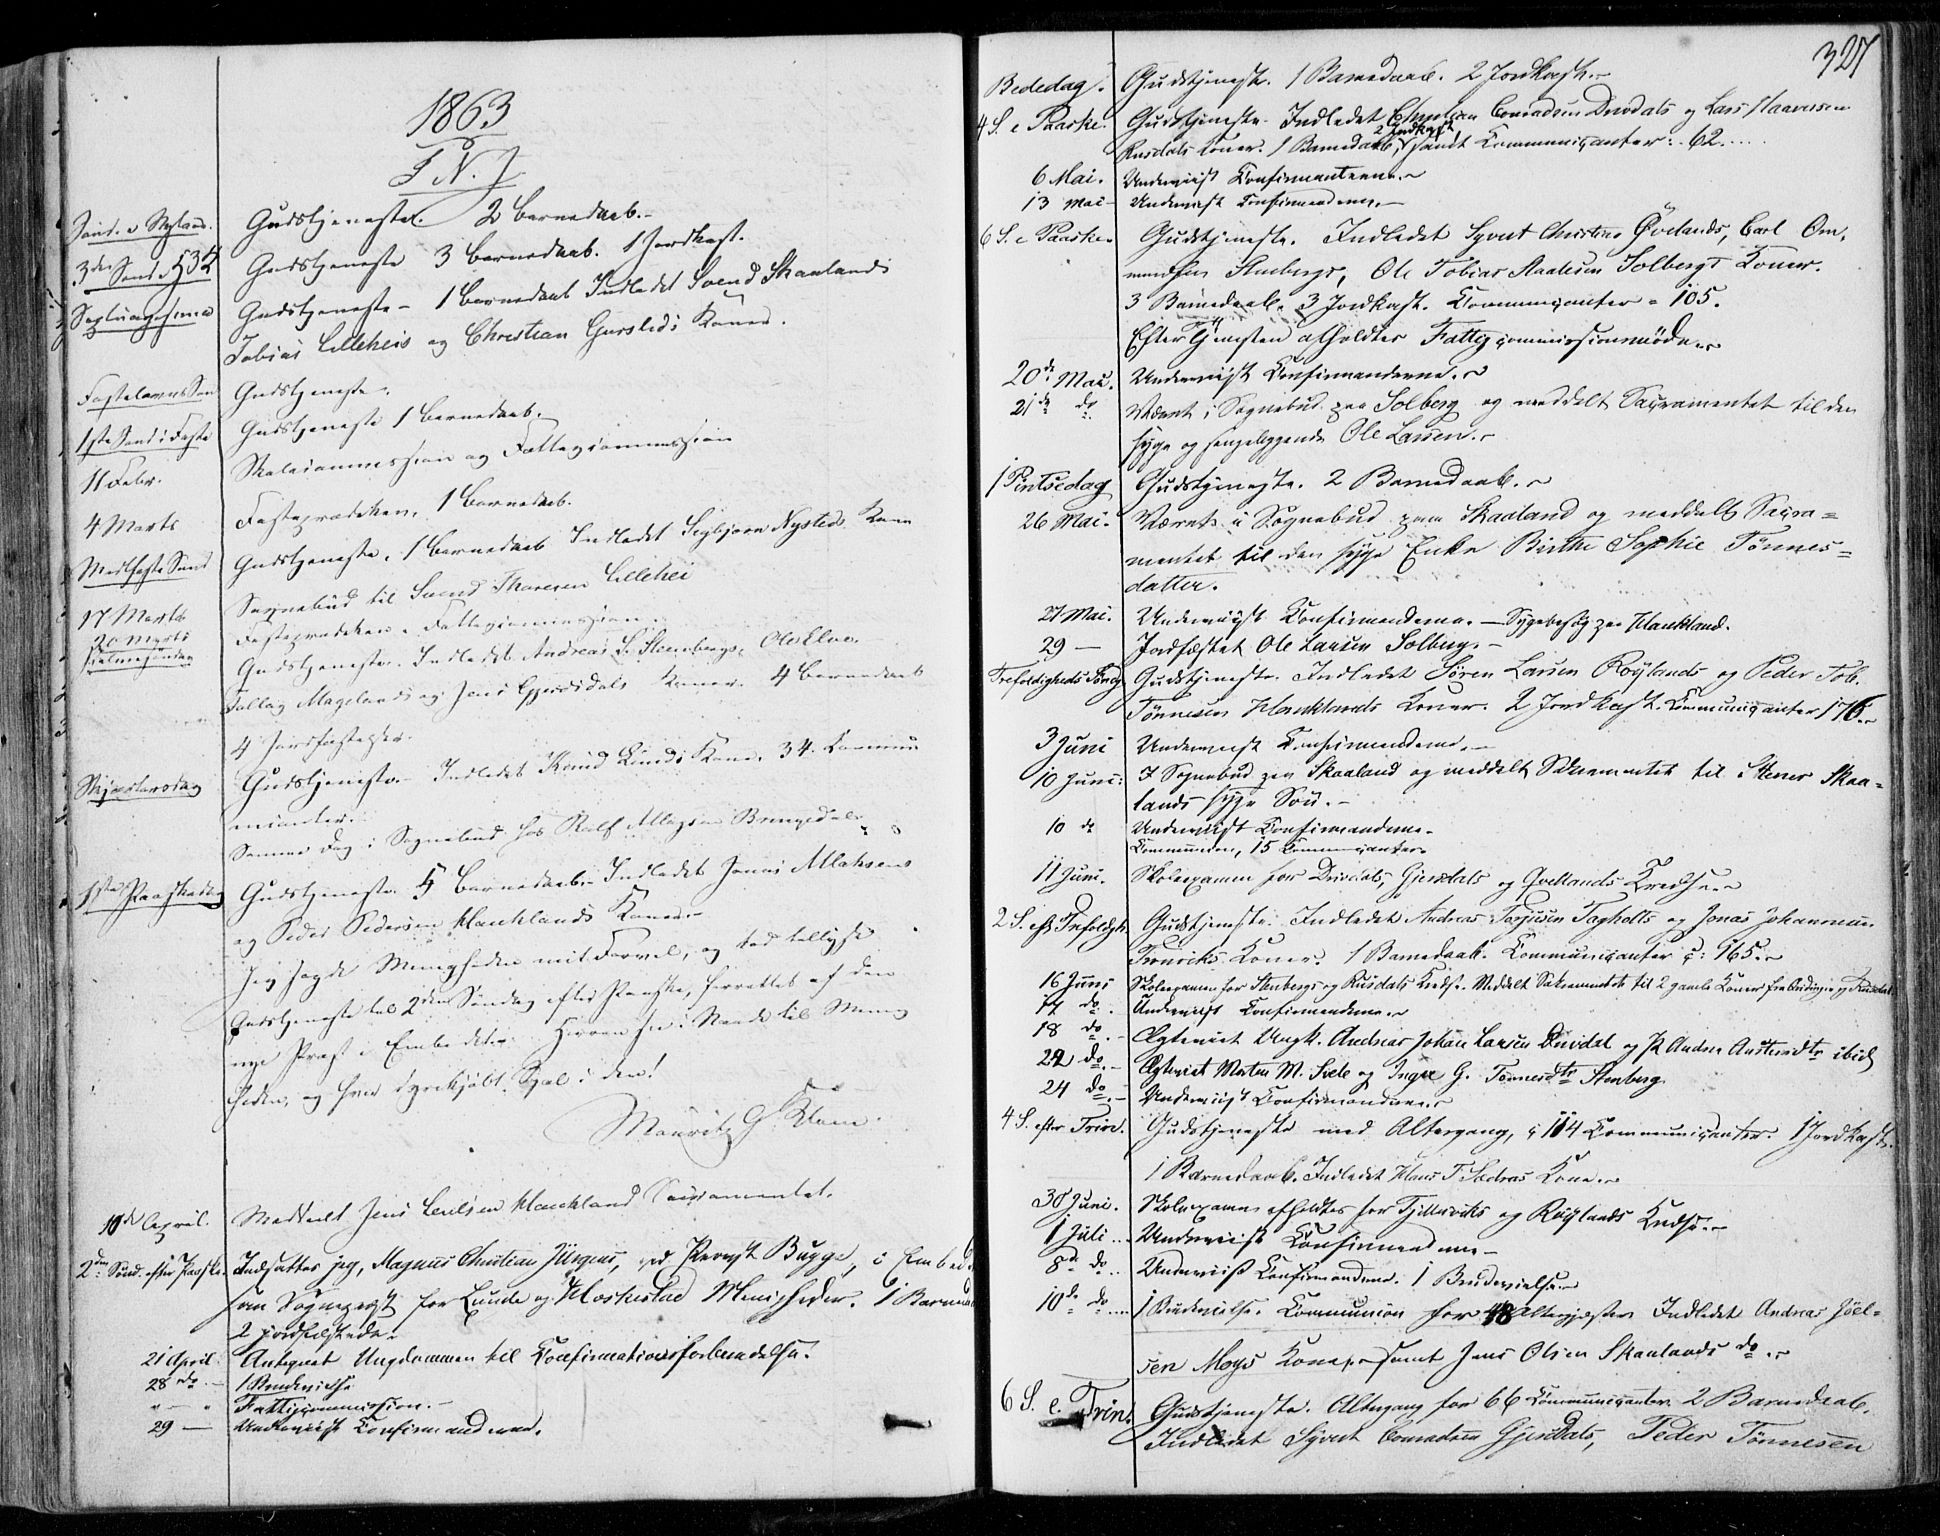 1863
I N. J.
Sønd. e Nytaar. Gudstjeneste. 2 Barnedaab.
3die Sønd. Gudstjeneste 3 Barnedaab. 1 Jordkast.
Septuagesima Gudstjeneste – 1 Barnedaab Indledet Svend Skaalands
Tobias Lilleheis og Christian Gursleds Koner.
Fastelavns Sønd Gudstjeneste.
1ste Sønd i Faste Gudstjeneste 1 Barnedaab.
11 Febr. Skolecommission og Fattigcommission
4 Marts Fasteprædiken. 1 Barnedaab.
Midtfaste Sønd Gudstjeneste. 1 Barnedaab Indledet Seybjørn Nysteds Kone
17 Marts Sognebud til Svend Thoresen Lillehei
20 Marts Fasteprædiken. Fattigcommission.
Palmesøndag Gudstjeneste. Indledet Andreas S. Steenbergs, Ole Elve,
Tallag Magelands og Jens Gjersdals Koner. 4 Barnedaab
4 Jordfæstelser.
Skjærtorsdag Gudstjeneste. Indledet Knud Lunds Kone. 34 Commu
nicanter.
Samme Dag i Sognebud hos Rolf Bringedal
1ste Paaskedag Gudstjeneste. 5 Barnedaab. Indledet Jonas
og Peder Pedersen Haucklands Koner.
Jeg sagde Menigheden mit Farvel, og tillyst
Gudstjeneste til 2den Søndag efter Paaske, forrettet af den
nye Præst i Embedet. Herren sin Naade til Menig
heden, og hver dyrekjøbt Sjæl i den!
Mauritz G. Klem.
10de April. Meddeelt Jens Hauckland Sacramentet.
2den Sønd. efter Paaske. Indsattes jeg, Magnus Christian Jürgens, ved Provst Bugge, i Embed
som Sognepræst for Lunde og Heskestad Menigheder. 1 Barned
2 Jordfæstede.
21 April. Antegnet Ungdommen til Confirmationsforberedelse.
28 do – 1 Brudevielse
" – " Fattigcommission. –
29 – Underviist Confirmanderne.
327
Bededag. Gudstjeneste. 1 Barnedaab. 2 Jordkast. –
4 S. e Paaske. Gudstjeneste. Indledet Christian Conradsen Drivdals og Lars Haaversen
2 Jordkast
Rusdals Koner. 1 Barnedaab, samt Communicanter: 62. ....
6 Mai. Underviist Confirmanterne.
13 Mai – Underviist Confirmanderne. –
6 S. e Paaske. Gudstjeneste. Indledet Syvert Christens Øvelands, Carl Om
mundsen Stenbergs, Ole Tobias Aadesen Solbergs Koner.
3 Barnedaab. 3 Jordkast. Communicanter = 105.
Efter Tjenesten afholdtes Fattigcommissionsmøde.
20de Mai. Underviist Confirmanderne.
21de do Været i Sognebud paa Solberg og meddelt Sacramentet til den
syge og sengeliggende Ole Larsen. –
1 Pintsedag Gudstjeneste. 2 Barnedaab.
26 Mai. Været i Sognebud paa Skaaland og meddelt Sacra=
mentet til den syge Enke Birthe Sophie Tønnes=
datter.
27 Mai. Underviist Confirmanderne. – Sygebesøg paa Hauckland.
29 – Jordfæstet Ole Larsen Solberg. –
Trefoldigheds Sønd. Gudstjeneste. Indledet Søren Larsen Røylands og Peder Tob.
Tønnesen Haucklands Koner. 2 Jordkast. Communicanter 176.
3 Juni Underviist Confirmanderne. –
10 Juni: I Sognebud paa Skaaland og meddelt Sakramentet til Stener Skaa=
lands syge Søn. –
10 do Underviist Confirmanderne.
Communion, 15 Communicanter.
11 Juni. Skoleexamen for Drivdals, Gjersdals og Qvellands Kredse.
2 S. eft Trefoldigh. Gudstjeneste. Indledet Andreas Torjusen Tagholts og Jonas Johannesen
Tronviks Koner. 1 Barnedaab. Communicanter ç: 165.
16 Juni Skoleexamen for Stenbergs og Rusdals Kredse. Meddelt Sakramentet til 2 gamle Koner fra
17 do. Underviist Confirmanderne.
18 do. – Egteviet Ungk. Andreas Johan Larsen Drivdal og P. Andrea Austensdtr ibid
22 do. – Egteviet Morten M. Sæle og Inger G. Tønnesdtr Stenberg.
24 do. – Underviist Confirmanderne.
4 S. efter Trin. Gudstjeneste med Altergang, ç 114 Communicanter. 1 Jordkast.
1 Barnedaab. Indledet Hans T. Kone.
30 Juni. Skoleexamen afholdtes for Tjellesviks og Røylands Kredse. –
1 Juli ... Underviist Confirmanderne –
8de do .. Underviist Confirmanderne. 1 Brudevielse.
10de do .... 1 Brudevielse. Communion for 48 Altergjester Indledet Andreas Joel=
sen Moys Kone, samt Jens Olsen Skaalands do.
6 S. e. Trin. Gudstjeneste. Altergang for 66 Communicanter 2 Barnedaab.
Indledet Syvert Conradsen Gjersdals, Peder Tønnesen